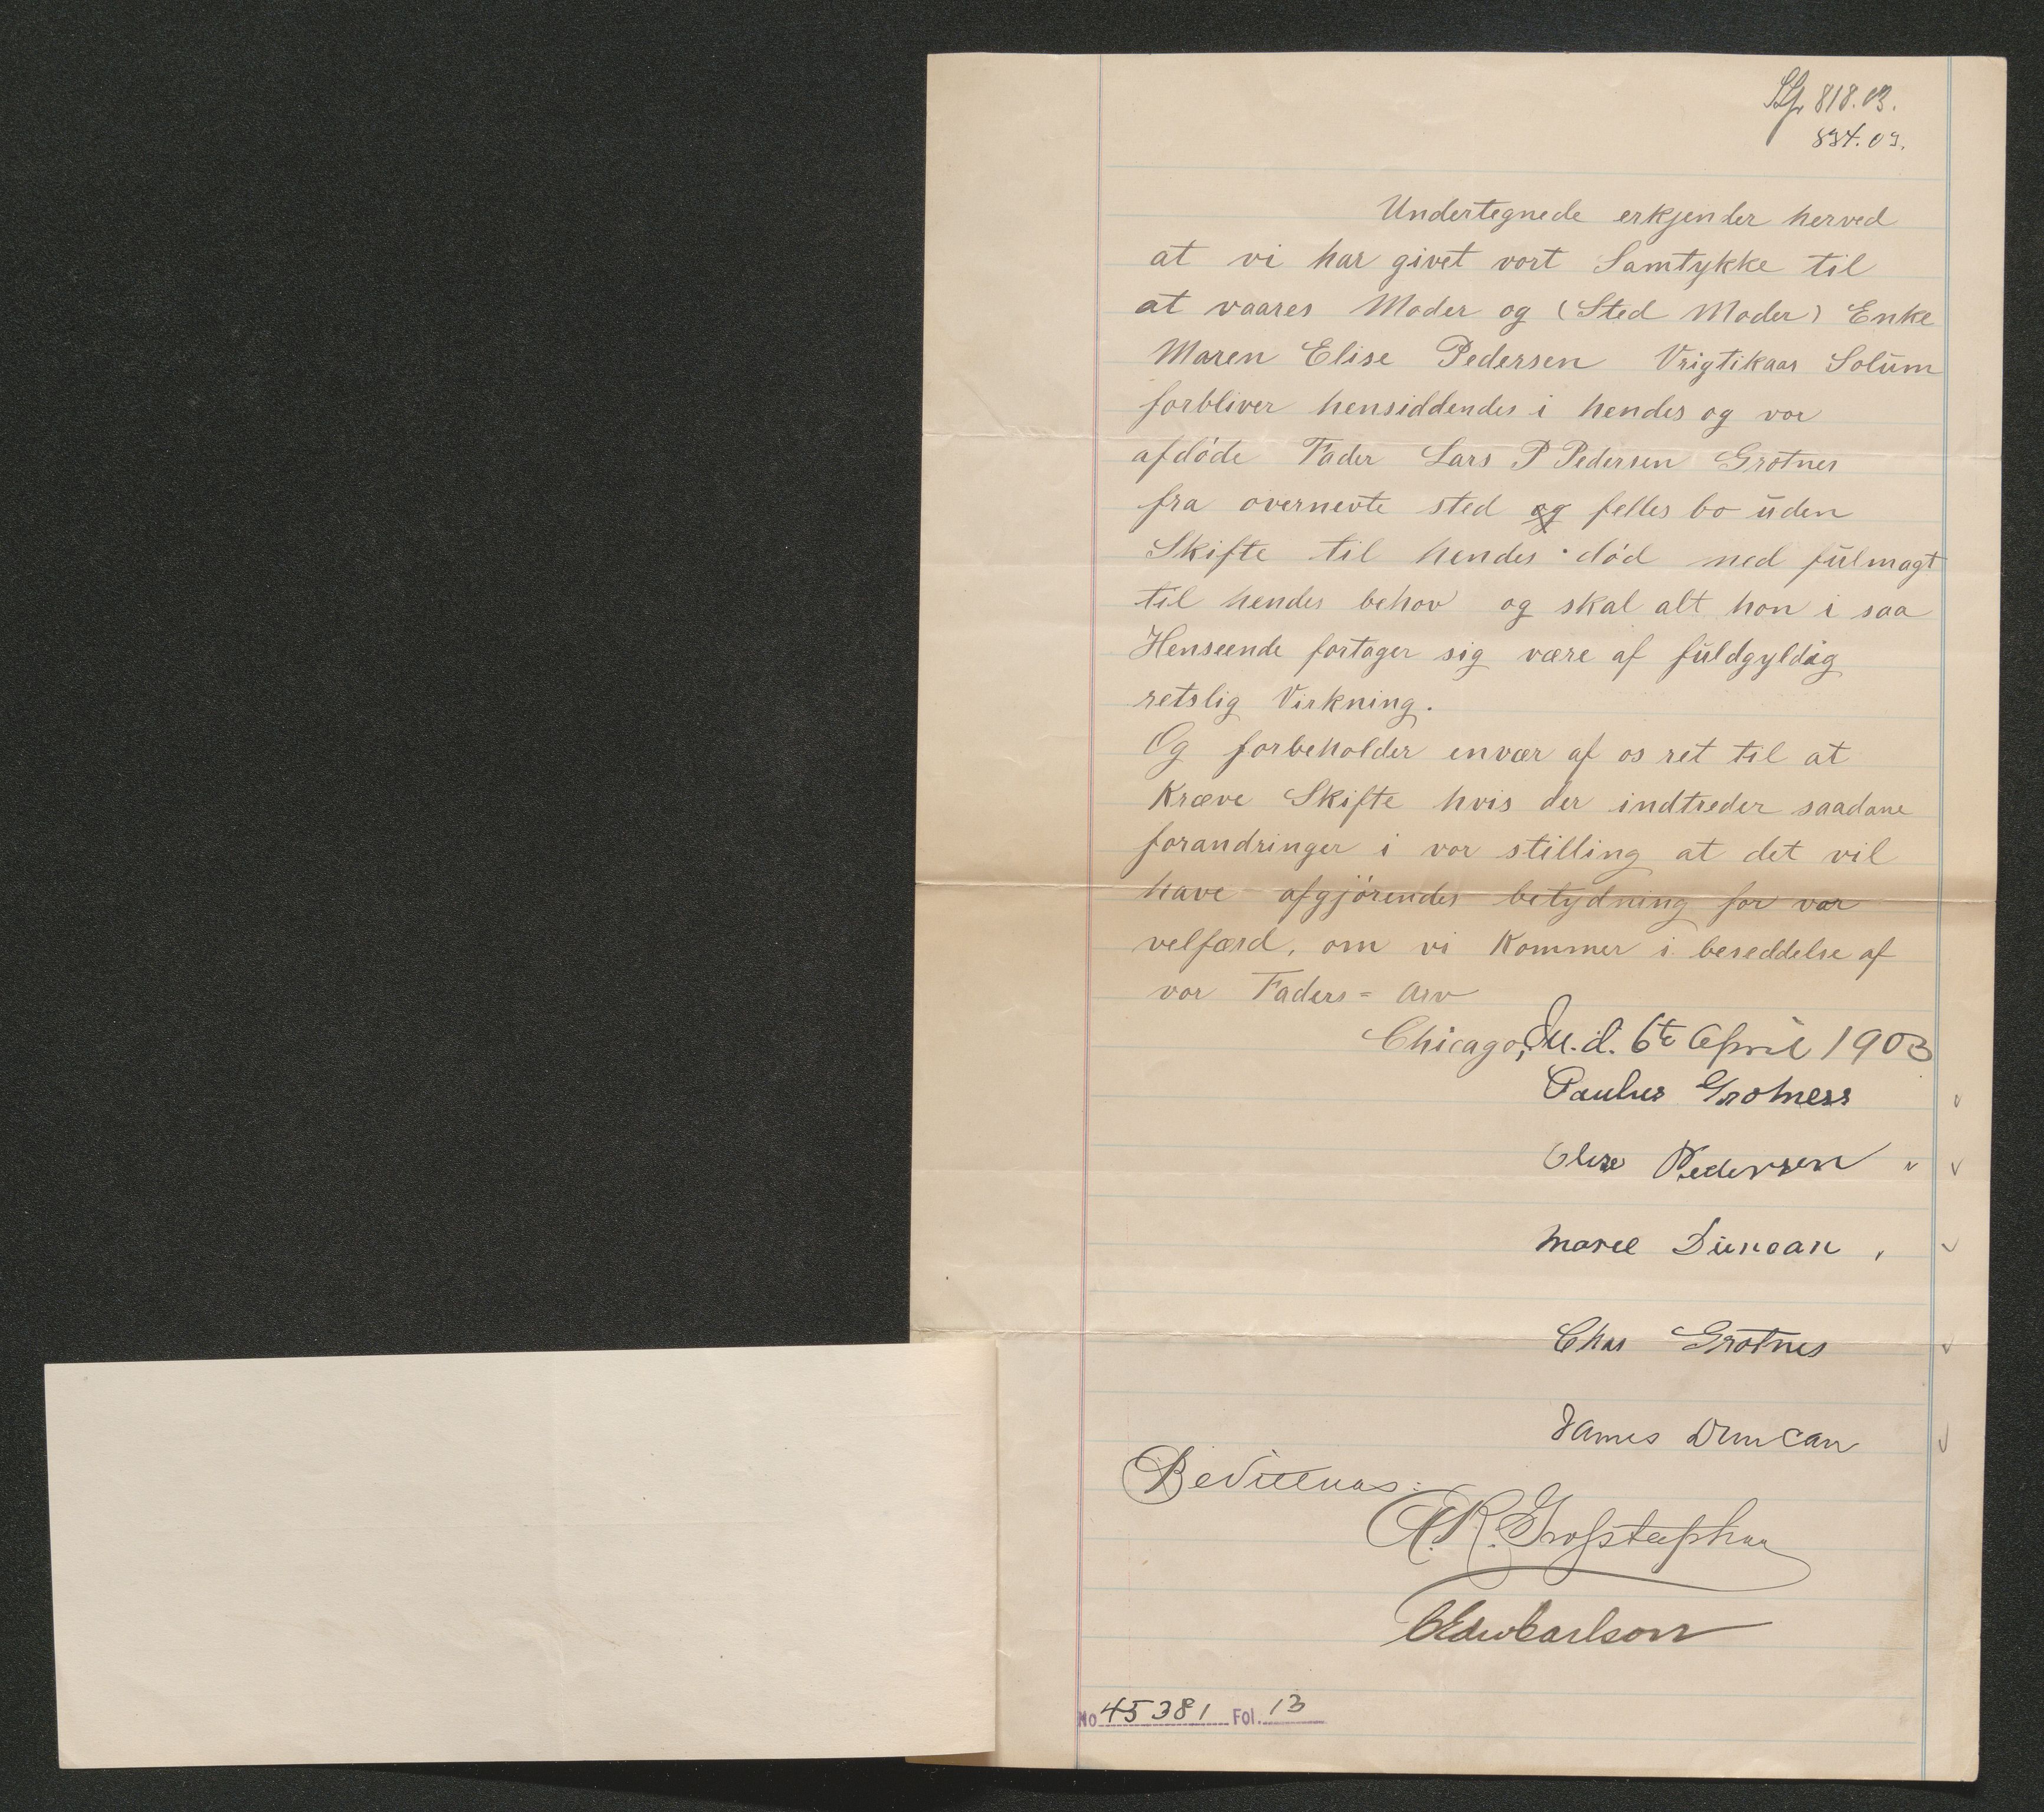 818.03.
834.03.
Undertegnede erkjender herved
at vi har givet vort Samtykke til
at vaares Moder og (Sted Moder) Enke
Maren Elise Pedersen Vrigtikaas Solum
forbliver hensiddendes i hendes og vor
afdøde Fader Lars P Pedersen Grotnes
fra overnevte sted og felles bo uden
Skifte til hendes død med fulmagt
til hendes behov og skal alt hon i saa
Henseende fortager sig være af fuldgyldig
retslig Virkning.
Og forbeholder envær af os ret til at
Kræve Skifte hvis der indtreder saadane
forandringer i vor stilling at det vil
have afgjörendes betydning for vor
velfærd, om vi Kommer i beseddelse af
vor Faders = Arv
Chicago, Ill. d. 6te April 1903
Paulus Grotness
Olise Pedersen
Marie Duncan
Chas Grotnes
James Duncan
Bevittnas:
A. R.
C Edw Carlson
No 45381 Fol. 13